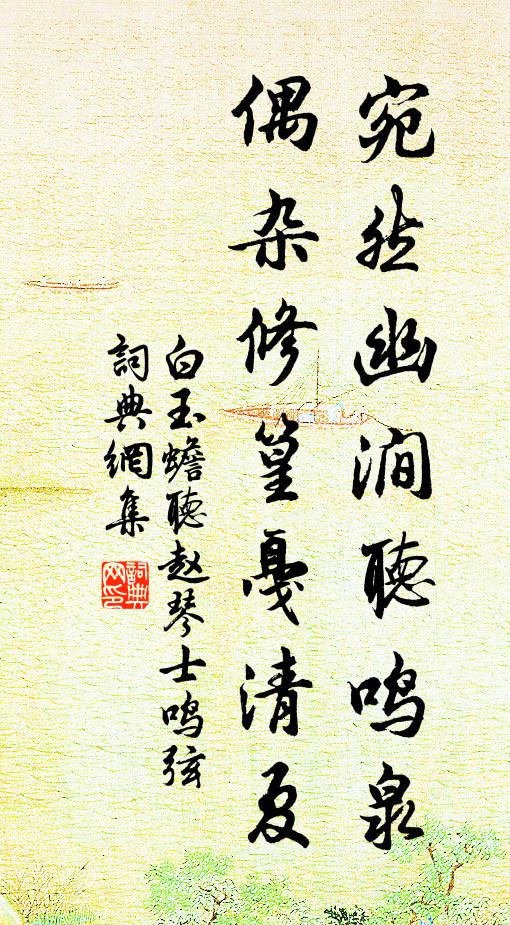 宛然幽澗聽鸣泉
偶杂修篁戛清夏
白玉蟾聽赵琴士鸣弦
詞典網集
詞典网印